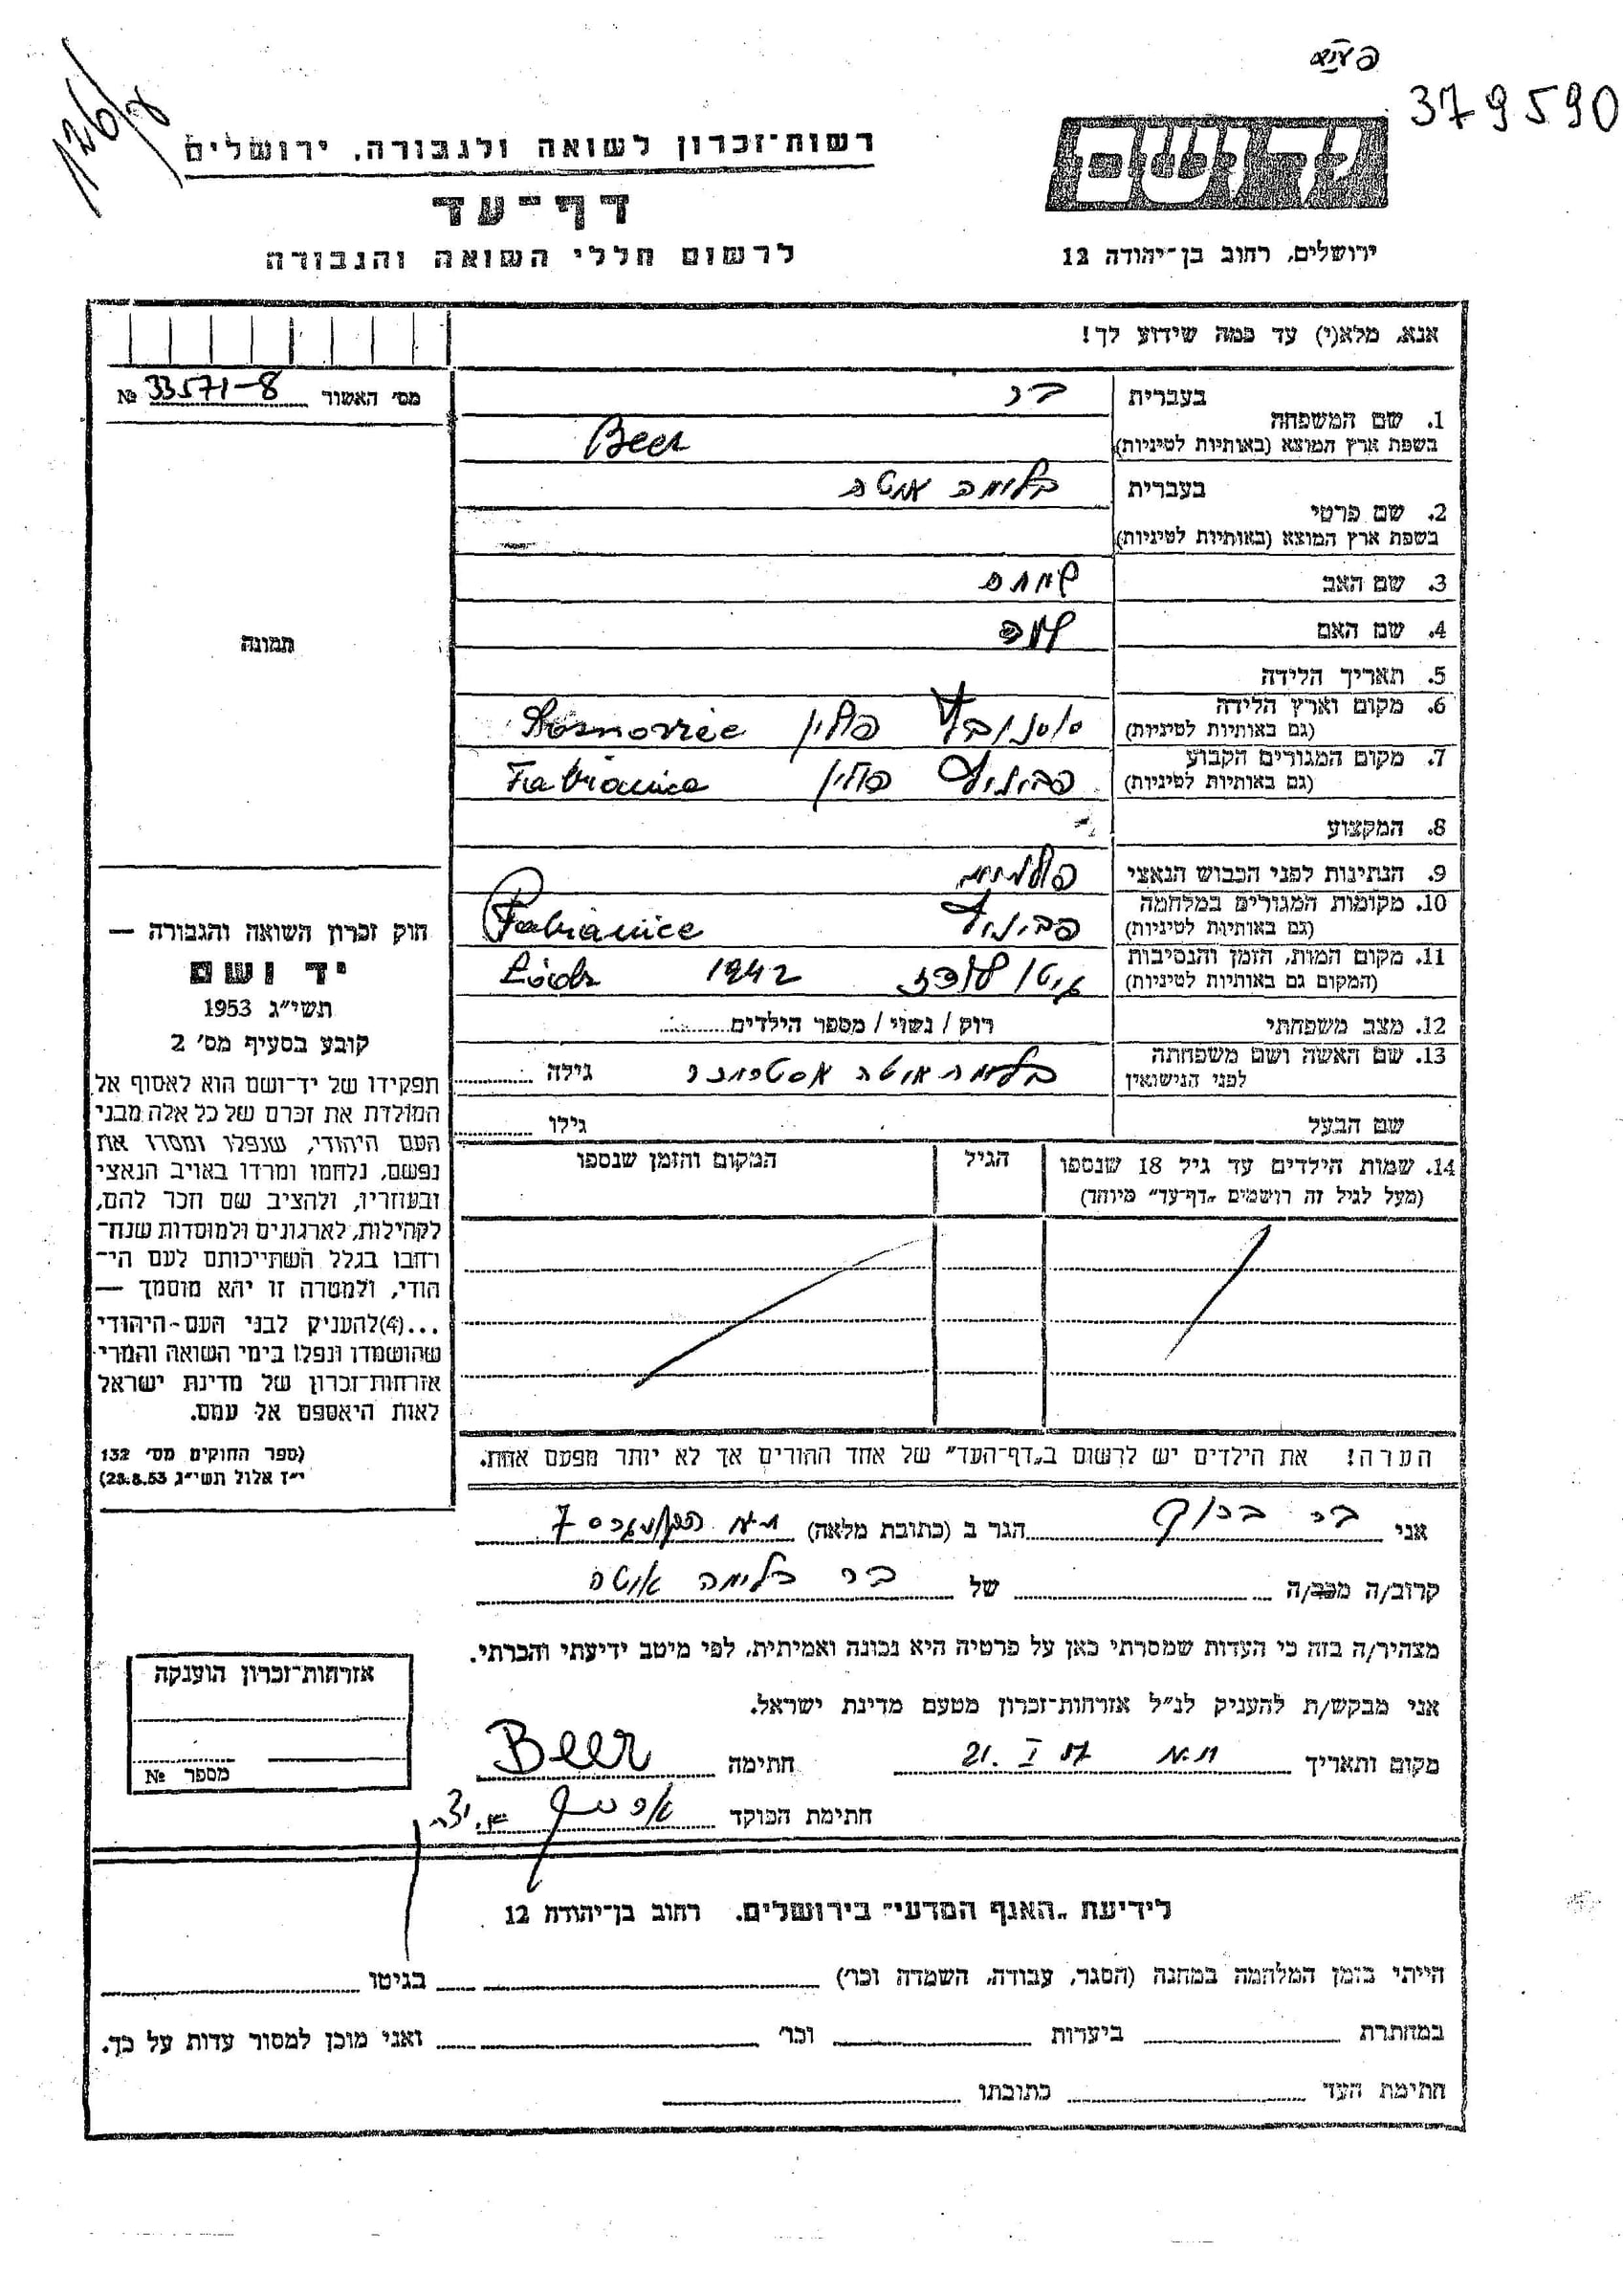 379590
126/
רשות־זכרון לשואה ולגבורה, ירושלים
דף־עד
לרשום חללי השואה והגבורה
יד ושם
ירושלים, רחוב בן־יהודה 12
אנא, מלא(י) עד כמה שידוע לך!
מס׳ האשור 33571-8 №
תמונה
1. שם המשפחה
בעברית בר
בשפת ארץ המוצא (באותיות לטיניות) Beer
2. שם פרטי
בעברית בלימה אוטה
בשפת ארץ המוצא (באותיות לטיניות)
3. שם האב שמחה
4. שם האם
5. תאריך הלידה
6. מקום וארץ הלידה
(גם באותיות לטיניות) סוסנוביץ פולין Sosnovice
7. מקום המגורים הקבוע
(גם באותיות לטיניות) פביניץ פולין Pabianice
8. המקצוע
9. הנתינות לפני הכבוש הנאצי פולנית
10. מקומות המגורים במלחמה
(גם באותיות לטיניות) פביניץ Pabianice
11. מקום המות, הזמן והנסיבות
(המקום גם באותיות לטיניות) גיטו לודז 1942 Łódz
12. מצב משפחתי רוק / נשוי / מספר הילדים
13. שם האשה ושם משפחתה
לפני הנישואין בלימה אוטה גילה
שם הבעל גילו
14. שמות הילדים עד גיל 18 שנספו
(מעל לגיל זה רושמים „דף־עד״ מיוחד)
הגיל
המקום והזמן שנספו
הערה! את הילדים יש לרשום ב„דף־העד״ של אחד ההורים אך לא יותר מפעם אחת.
חוק זכרון השואה והגבורה —
יד ושם
תשי״ג 1953
קובע בסעיף מס׳ 2
תפקידו של יד־ושם הוא לאסוף אל
המולדת את זכרם של כל אלה מבני
העם היהודי, שנפלו ומסרו את
נפשם, נלחמו ומרדו באויב הנאצי
ובעוזריו, ולהציב שם וזכר להם,
לקהילות, לארגונים ולמוסדות שנח־
רבו בגלל השתייכותם לעם הי־
הודי, ולמטרה זו יהא מוסמך —
...(4)להעניק לבני העם-היהודי
שהושמדו ונפלו בימי השואה והמרי
אזרחות־זכרון של מדינת ישראל
לאות היאספם אל עמם.
(ספר החוקים מס׳ 132
י״ז אלול תשי״ג 28.8.53)
אני בר ברוך הגר ב (כתובת מלאה) ת״א 7
קרוב/ה מכר/ה של בר בלימה אוטה
מצהיר/ה בזה כי העדות שמסרתי כאן על פרטיה היא נכונה ואמיתית, לפי מיטב ידיעתי והכרתי.
אני מבקש/ת להעניק לנ״ל אזרחות־זכרון מטעם מדינת ישראל.
מקום ותאריך ת״א 21. I 57 חתימה Beer
חתימת הפוקד
אזרחות־זכרון הוענקה
מספר №
לידיעת „האגף המדעי״ בירושלים. רחוב בן־יהודה 12
הייתי בזמן המלחמה במחנה (הסגר, עבודה, השמדה וכו׳) בגיטו
במחתרת ביערות וכו׳ ואני מוכן למסור עדות על כך.
חתימת העד כתובתו